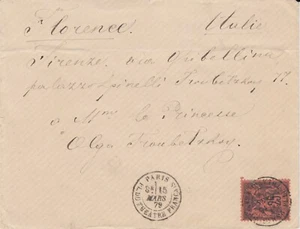 Florence. Italie
Firenze, via Ghibellina
palazzo Spinelli Troubetzkoy 77.
à Mme la Princesse
Olga Troubetzkoy
PARIS
8E 15
MARS
79